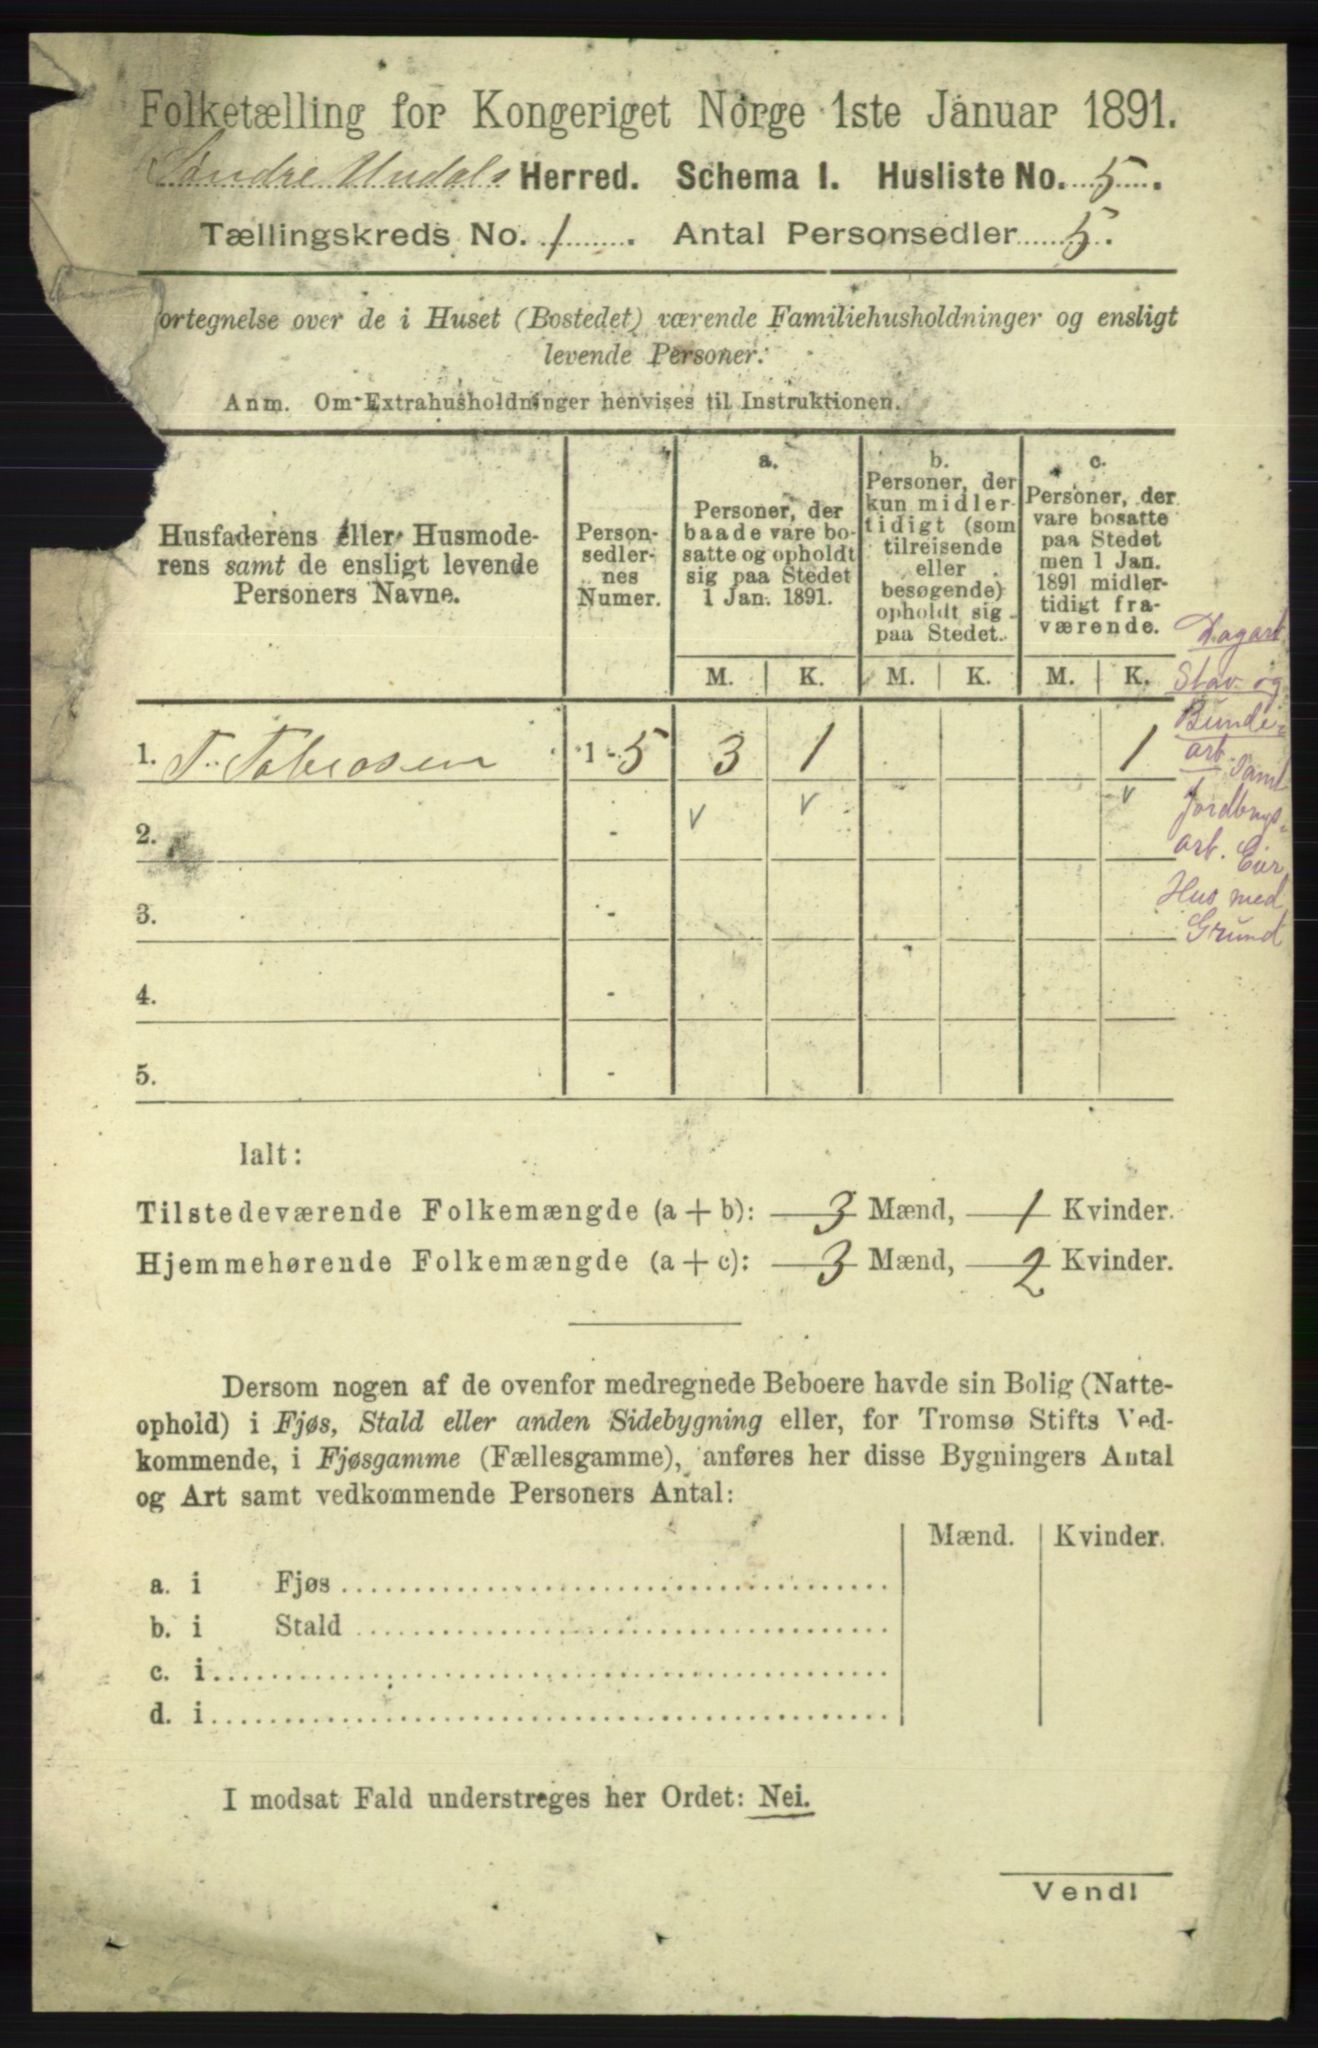 Folketælling for Kongeriget Norge 1ste Januar 1891.
Søndre Undals Herred. Schema 1. Husliste No. 5.
Tællingskreds No. 1. Antal Personsedler 5.
ortegnelse over de i Huset (Bostedet) værende Familiehusholdninger og ensligt
levende Personer.
Anm. Om Extrahusholdninger henvises til Instruktionen.
Husfaderens eller Husmode-
rens samt de ensligt levende
Personers Navne.
Person-
sedler-
nes
Numer.
a.
Personer, der
baade vare bo-
satte og opholdt
sig paa Stedet
1 Jan. 1891.
b.
Personer, der
kun midler-
tidigt (som
tilreisende
eller
besøgende)
opholdt sig
paa Stedet.
c.
Personer, der
vare bosatte
paa Stedet
men 1 Jan.
1891 midler-
tidigt fra-
værende.
M. K. M. K. M. K.
1. T. Tobiasen 1 - 5 3 1 1
2. -
3. -
4. -
5. -
Dagarb
Stav og
Bunde-
arb. samt
Jordbrugs-
arb. Eier
Hus med
Grund
Ialt:
Tilstedeværende Folkemængde (a + b): 3 Mænd, 1 Kvinder.
Hjemmehørende Folkemængde (a + c): 3 Mænd, 2 Kvinder.
Dersom nogen af de ovenfor medregnede Beboere havde sin Bolig (Natte-
ophold) i Fjøs, Stald eller anden Sidebygning eller, for Tromsø Stifts Ved-
kommende, i Fjøsgamme (Fællesgamme), anføres her disse Bygningers Antal
og Art samt vedkommende Personers Antal:
Mænd. Kvinder.
a. i Fjøs
b. i Stald
c. i
d. i
I modsat Fald understreges her Ordet: Nei.
Vend!